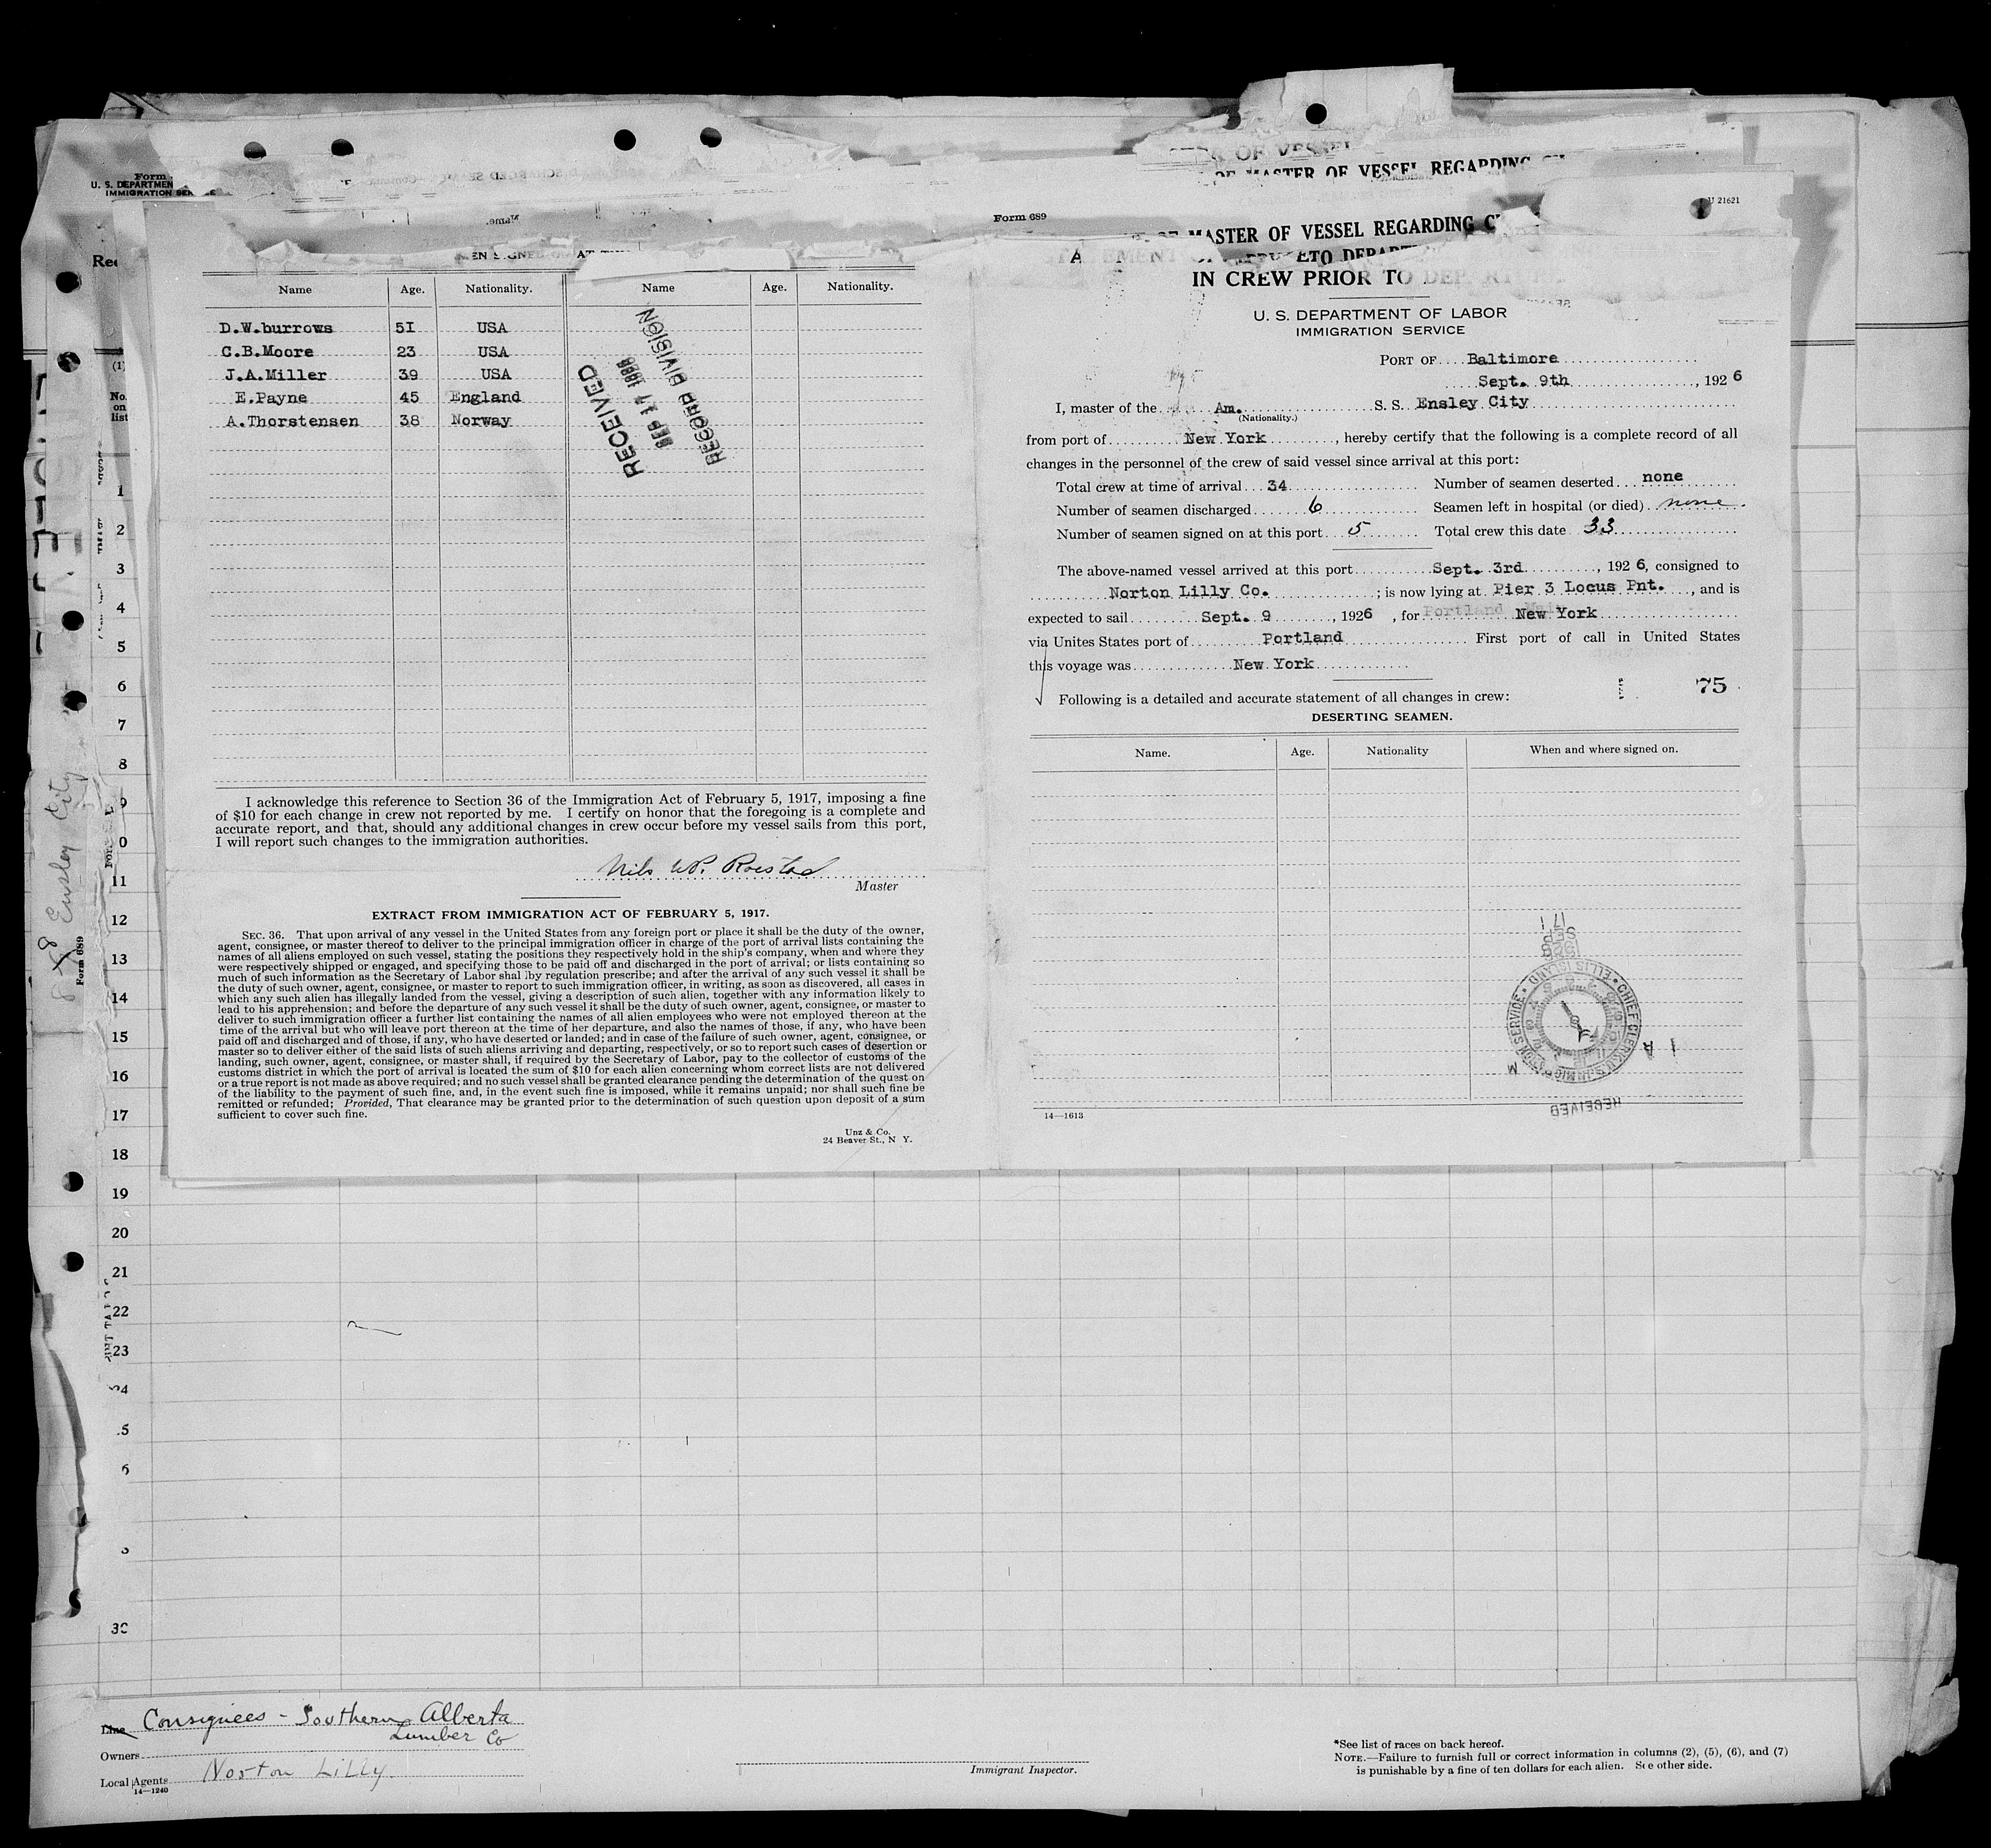 Form
U. S. DEPARTMEN
IMMIGRATION SER
OF VESSEL
OF MASTER OF VESSEL REGARDING
Form 689
U 21621
MASTER OF VESSEL REGARDING C
IN CREW PRIOR TO DEPARTURE
U. S. DEPARTMENT OF LABOR
IMMIGRATION SERVICE
Name Age. Nationality. Name Age. Nationality.
D.W.burrows 5I USA
C.B.Moore 23 USA
J.A.Miller 39 USA
E.Payne 45 England
A.Thorstensen 38 Norway
RECEIVED
SEP 17 1926
RECORD DIVISION
I acknowledge this reference to Section 36 of the Immigration Act of February 5, 1917, imposing a fine
of $10 for each change in crew not reported by me. I certify on honor that the foregoing is a complete and
accurate report, and that, should any additional changes in crew occur before my vessel sails from this port,
I will report such changes to the immigration authorities.
Nils W. Roestad
Master
EXTRACT FROM IMMIGRATION ACT OF FEBRUARY 5, 1917.
SEC. 36. That upon arrival of any vessel in the United States from any foreign port or place it shall be the duty of the owner,
agent, consignee, or master thereof to deliver to the principal immigration officer in charge of the port of arrival lists containing the
names of all aliens employed on such vessel, stating the positions they respectively hold in the ship's company, when and where they
were respectively shipped or engaged, and specifying those to be paid off and discharged in the port of arrival; or lists containing so
much of such information as the Secretary of Labor shall by regulation prescribe; and after the arrival of any such vessel it shall be
the duty of such owner, agent, consignee, or master to report to such immigration officer, in writing, as soon as discovered, all cases in
which any such alien has illegally landed from the vessel, giving a description of such alien, together with any information likely to
lead to his apprehension; and before the departure of any such vessel it shall be the duty of such owner, agent, consignee, or master to
deliver to such immigration officer a further list containing the names of all alien employees who were not employed thereon at the
time of the arrival but who will leave port thereon at the time of her departure, and also the names of those, if any, who have been
paid off and discharged and of those, if any, who have deserted or landed; and in case of the failure of such owner, agent, consignee, or
master so to deliver either of the said lists of such aliens arriving and departing, respectively, or so to report such cases of desertion or
landing, such owner, agent, consignee, or master shall, if required by the Secretary of Labor, pay to the collector of customs of the
customs district in which the port of arrival is located the sum of $10 for each alien concerning whom correct lists are not delivered
or a true report is not made as above required; and no such vessel shall be granted clearance pending the determination of the quest on
of the liability to the payment of such fine, and, in the event such fine is imposed, while it remains unpaid; nor shall such fine be
remitted or refunded; Provided, That clearance may be granted prior to the determination of such question upon deposit of a sum
sufficient to cover such fine.
Unz & Co.
24 Beaver St., N Y.
PORT OF Baltimore
Sept. 9th, 1926
I, master of the Am. S. S. Ensley City
(Nationality.)
from port of New York, hereby certify that the following is a complete record of all
changes in the personnel of the crew of said vessel since arrival at this port:
Total crew at time of arrival 34 Number of seamen deserted none
Number of seamen discharged 6 Seamen left in hospital (or died) none
Number of seamen signed on at this port 5 Total crew this date 33
The above-named vessel arrived at this port Sept. 3rd, 1926, consigned to
Norton Lilly Co.; is now lying at Pier 3 Locus Pnt., and is
expected to sail Sept. 9, 1926, for New York
via Unites States port of Portland First port of call in United States
this voyage was New York
Following is a detailed and accurate statement of all changes in crew: 75
DESERTING SEAMEN.
Name. Age. Nationality When and where signed on.
CHIEF CLERK
ELLIS ISLAND
RECEIVED
14—1613
Rec
(1)
No.
on
list
1
2
3
4
5
6
7
8
9
0
11
12
13
14
15
16
17
18
19
20
21
22
23
24
5
6
30
Ensley City
Form 689
Line Consignees - Southern Alberta
Lumber Co
Owners
Local Agents Norton Lilly.
14—1240
Immigrant Inspector.
*See list of races on back hereof.
NOTE.—Failure to furnish full or correct information in columns (2), (5), (6), and (7)
is punishable by a fine of ten dollars for each alien. See other side.